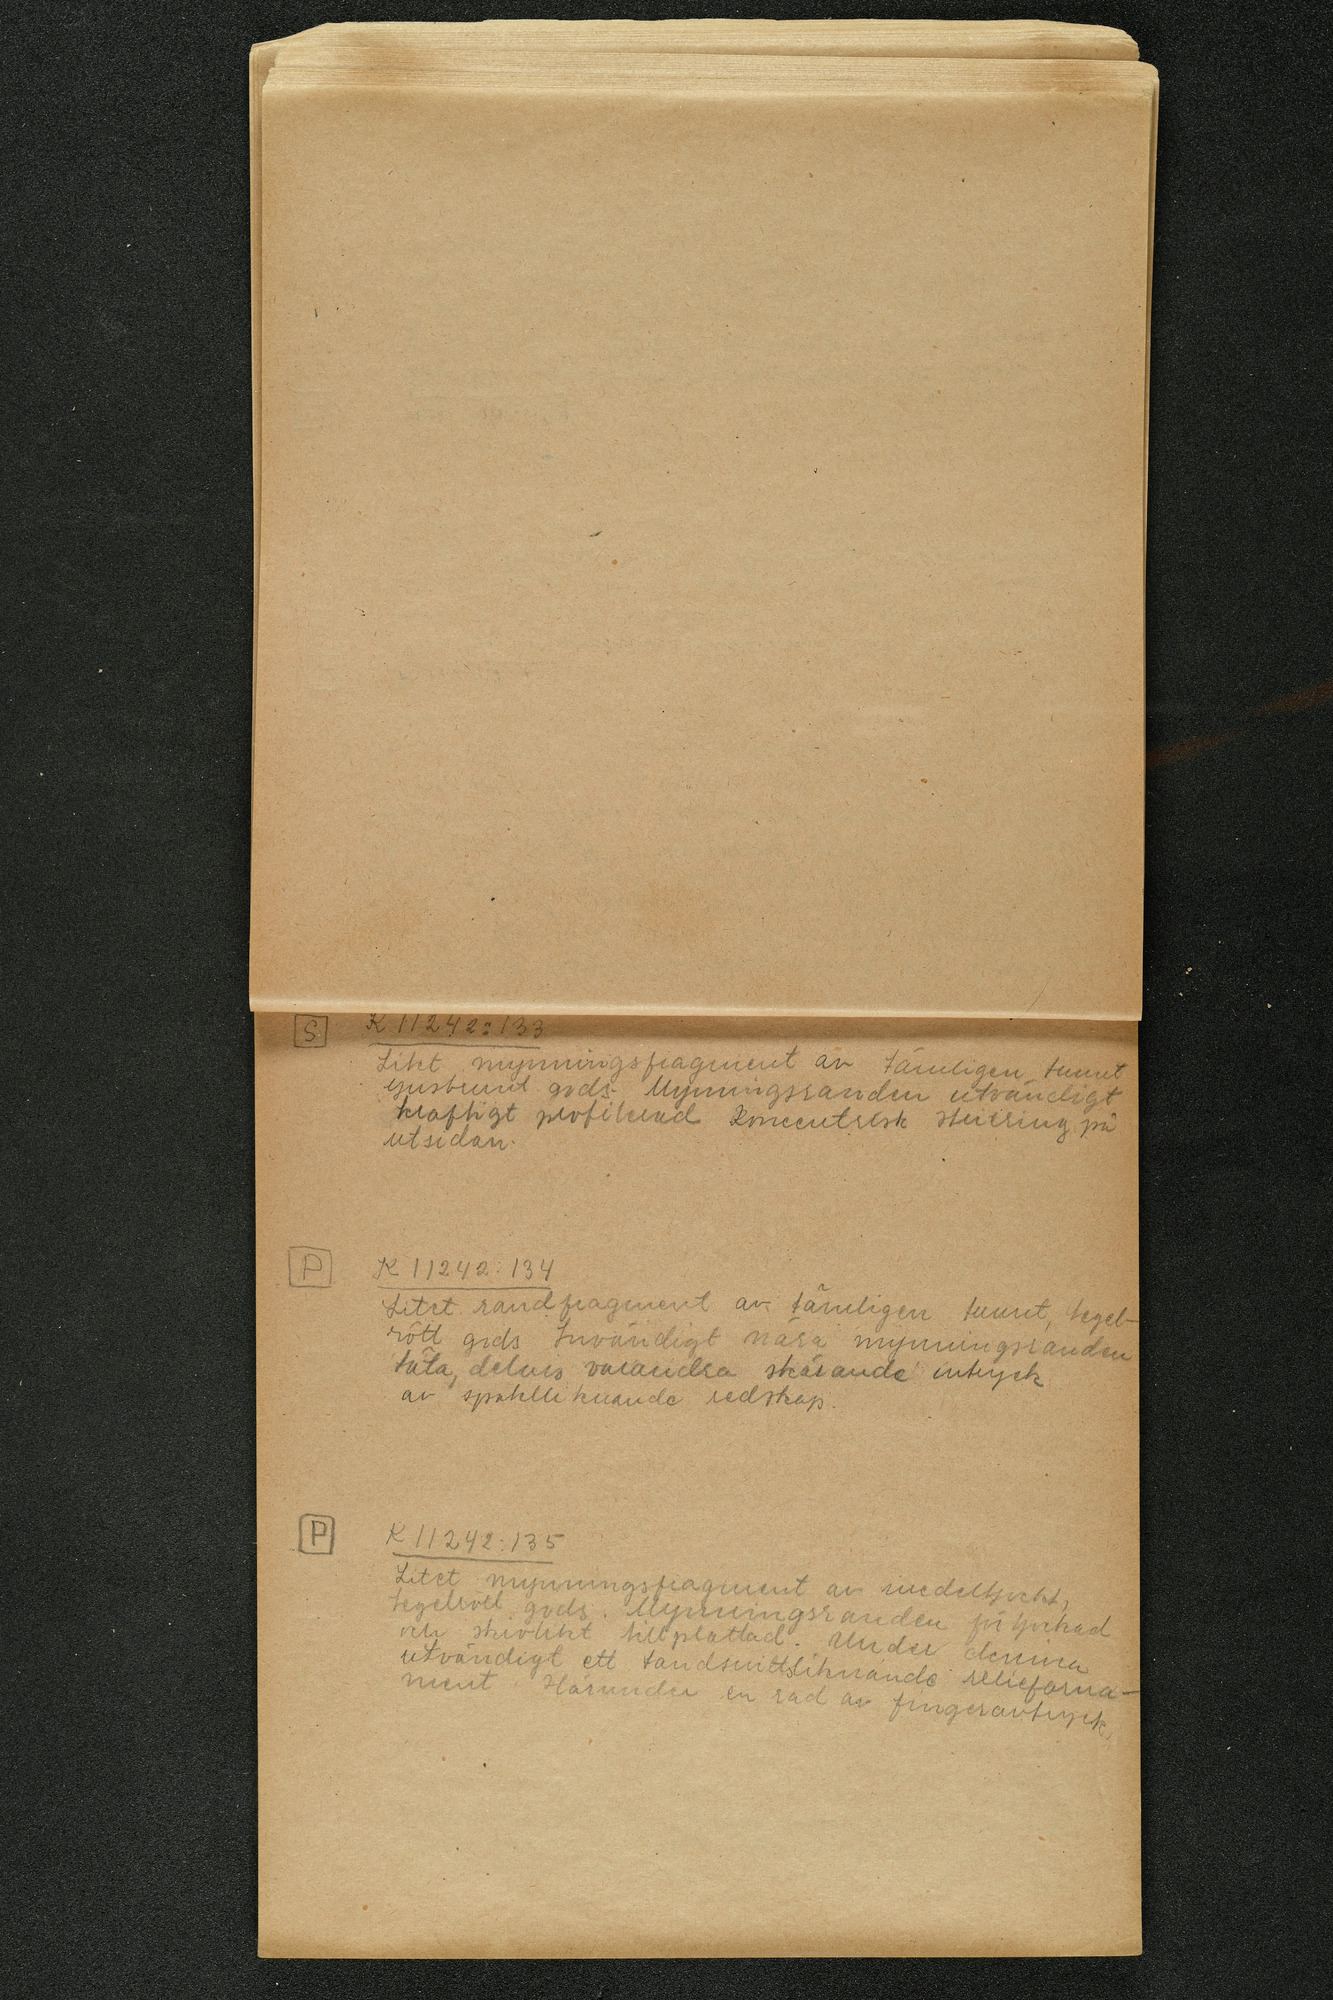 S K 11242:133
Litet mynningsfragment av tämligen tunnt
ljusbrunt gods. Mynningsranden utvändigt
kraftigt profilerad Koncentrisk striering på
utsidan.
P K 11242:134
Litet randfragment av tämligen tunnt, tegel-
rött gods Invändigt nära mynningsranden
täta, delvis varandra skärande intryck
av spatelliknande redskap.
P K 11242:135
Litet mynningsfragment av medeltjockt,
tegelrött gods. Mynningsranden förtjockad
och skivlikt tillplattad. Under denna
utvändigt ett tandsnittsliknande relieforna-
ment Härunder en rad av fingeravtryck.